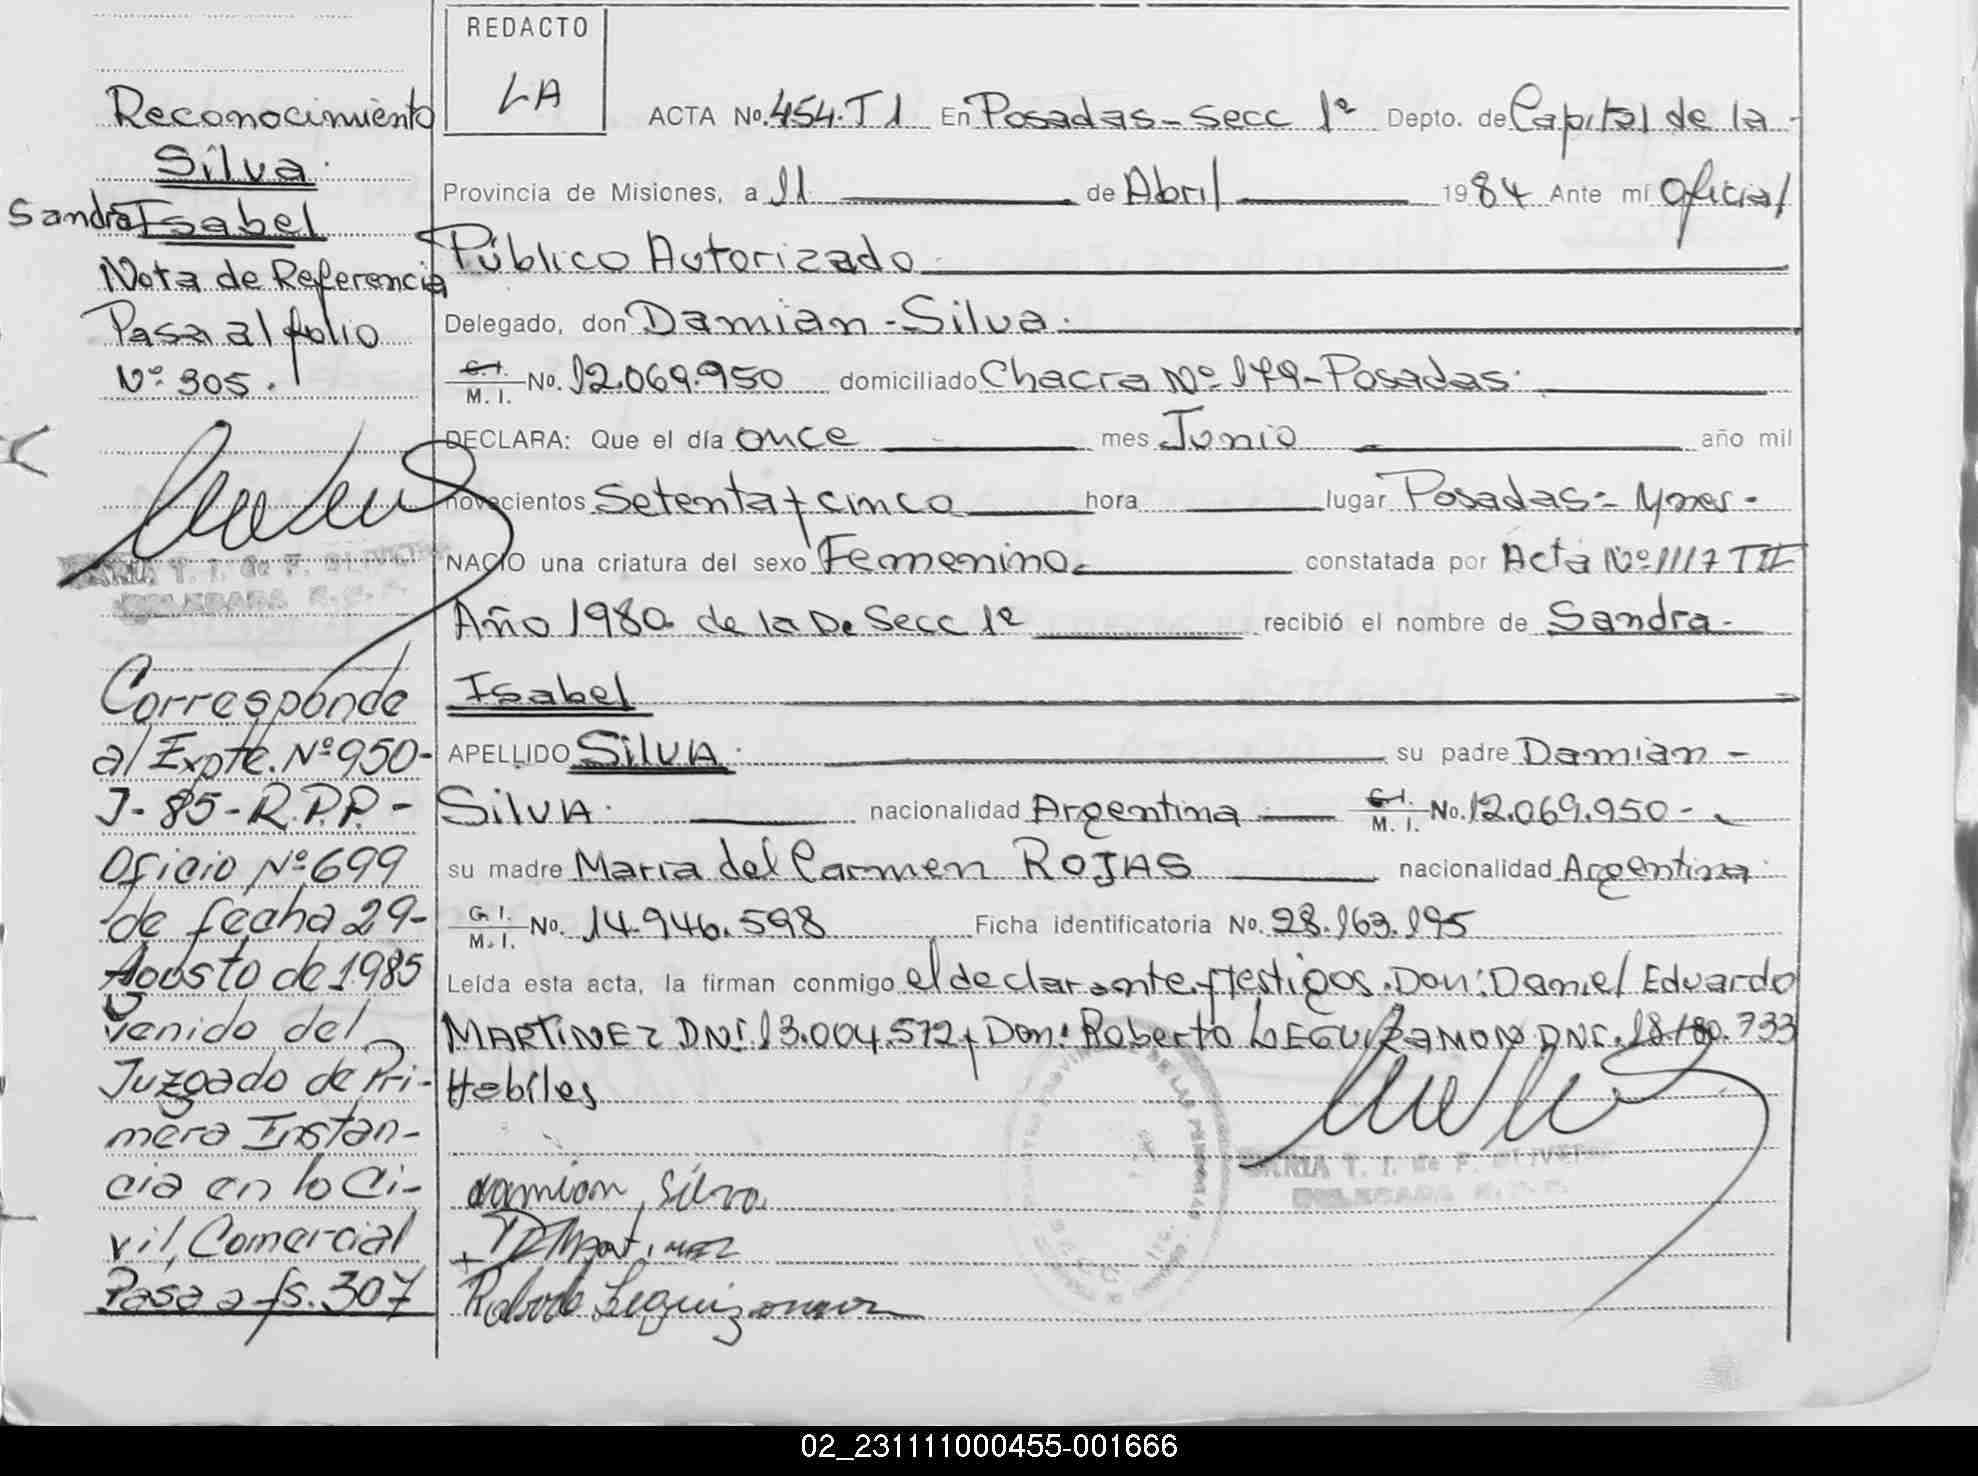 REDACTO
LA
Reconocimiento
Silva
Sandra Isabel
Nota de Referencia
Pasa al folio
Nº 305.
MARIA T. I. de F. OLIVEIRA
DELEGADA R.P.P.
Corresponde
al Expte. Nº 950-
J-85-R.P.P.-
Oficio Nº 699
de fecha 29-
Agosto de 1985
venido del
Juzgado de Pri-
mera Instan-
cia en lo Ci-
vil, Comercial
Pasa a fs. 307
ACTA No. 454. T I En Posadas - Secc 1ª Depto. de Capital de la -
Provincia de Misiones, a 11 de Abril 1984 Ante mí Oficial
Público Autorizado
Delegado, don Damian - Silva.
C.I. M.I. No. 12.069.950 domiciliado Chacra Nº 179 - Posadas.
DECLARA: Que el día once mes Junio año mil
novecientos Setenta y cinco hora lugar Posadas = Mnes -
NACIO una criatura del sexo Femenino constatada por Acta Nº 1117 T III
Año 1980 de la De Secc 1ª recibió el nombre de Sandra -
Isabel
APELLIDO SILVA. su padre Damian -
SILVA. nacionalidad Argentina C.I. M.I. No. 12.069.950 -
su madre María del Carmen ROJAS nacionalidad Argentina
C.I. M.I. No. 14.946.598 Ficha identificatoria No. 28.163.195
Leída esta acta, la firman conmigo el declarante y testigos. Don: Daniel Eduardo
MARTINEZ DNI. 13.004.572 y Don: Roberto LEGUIZAMON DNI. 18.180.733
Habiles
MARIA T. I. de F. OLIVEIRA
DELEGADA R.P.P.
damian silva
D E Martinez
Roberto Leguizamon
02_231111000455-001666